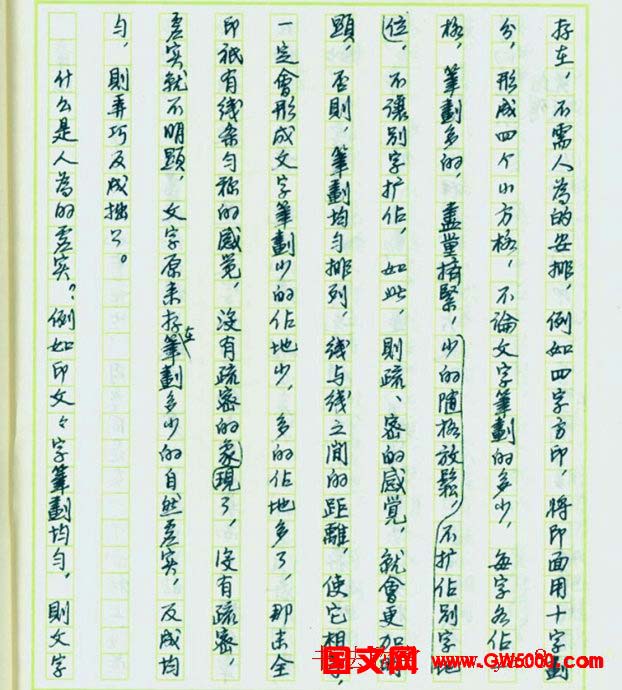 存在，不需人為的安排，例如四字方印，將印面用十字劃
分，形成四个小方格，不論文字筆劃的多少，每字各佔
格，筆劃多的，盡量擠緊，少的随格放鬆，不扩佔别字地
位，不讓别字扩佔，如此，則疏、密的感觉，就會更加的
顕，否則，筆劃均匀排列，线与线之间的距離，使它相
一定會形成文字筆劃少的佔地少，多的佔地多了，那末全
印祇有线条匀称的感觉，沒有疏密的象現了，沒有疏密，
虚实就不明顕，文字原来存在筆劃多少的自然虚实，反成均
匀，則弄巧反成拙了。
什么是人為的虚实？例如印文々字筆劃均匀，則文字
国文网 www.GW5000.com